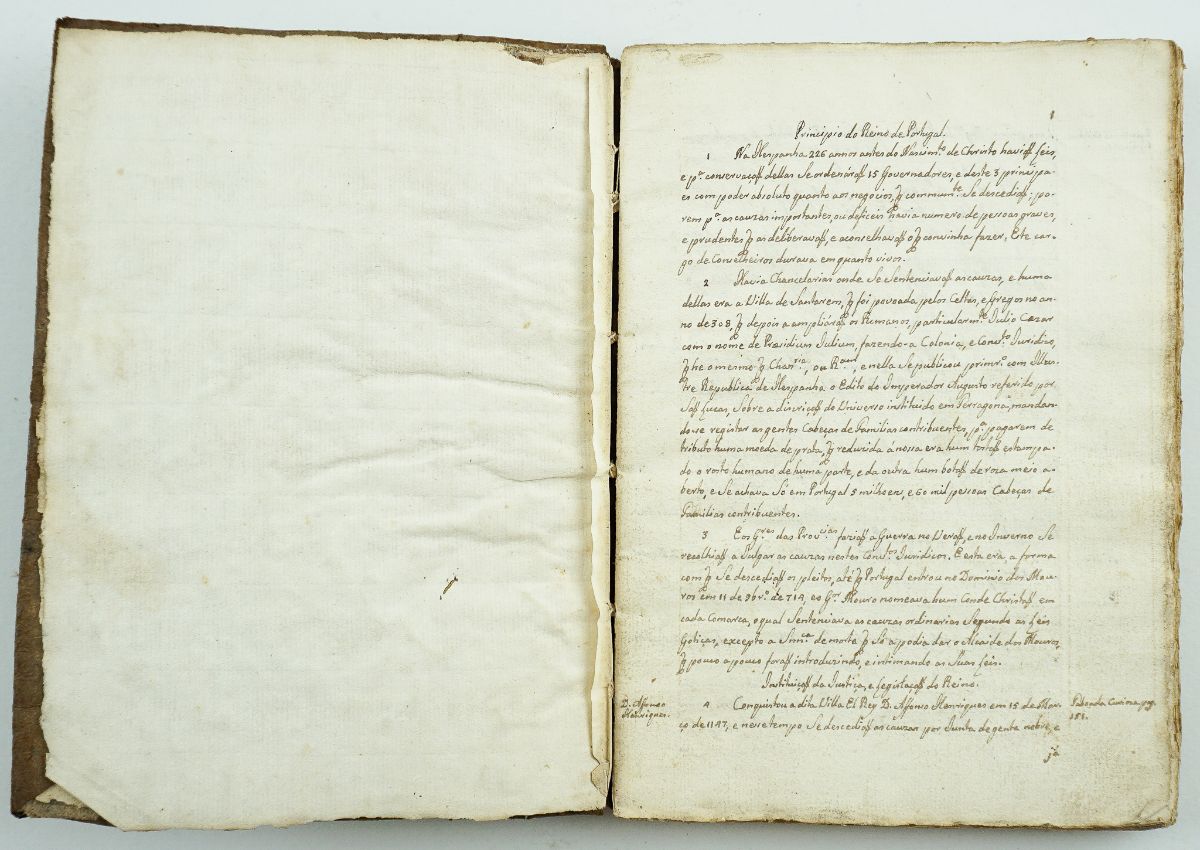 1
Principio do Reino de Portugal.
1 Na Hespanha 226 annos antes do Nascim.to de Christo haviaõ Leis,
e p.a conservaçaõ dellas Se ordenáraõ 15 Governadores, e deste 3 principa-
es com poder absoluto quanto aos negocios, q̃ commum.te Se descediaõ; po-
rem p.a as cauzas importantes, ou deficeis havia numero de pessoas graves,
e prudentes q̃ as deliberavaõ, e aconselhavaõ o q̃ convinha fazer. Este car-
go de Conselheiros durava em quanto vivos.
2 Havia Chancelarias onde Se Sentenciavaõ as cauzas, e huma
dellas era a Villa de Santarem, q̃ foi povoada pelos Celtas, e Gregos no an-
no de 308, q̃ depois a ampliáraõ os Romanos, particularm.te Julio Cezar
com o nome de Præsidium Julium, fazendo-a Colonia, e Conv.to Juridico,
q̃ he o mesmo q̃ Chan.ria, ou R.am, e nella Se publicou primr.o com Illus-
tre Republica de Hespanha o Edito do Imperador Augusto referido por
Saõ Lucas, Sobre a discriçaõ do Universo instituido em Terragona, mandan-
do-se registar as gentes Cabeças de Familias contribuentes, p.a pagarem de
tributo huma moeda de prata, q̃ reduzida á nossa era hum tostaõ estampa-
do o rosto humano de huma parte, e da outra hum botaõ de roza meio a-
berto, e Se achava Só em Portugal 5 milhoens, e 60 mil pessoas Cabeças de
Familias contribuentes.
3 E os G.res das Prov.ias faziaõ a Guerra no Veraõ, e no Inverno Se
recolhiaõ a Julgar as cauzas nestes Conv.tos Juridicos. E esta era a forma
com q̃ Se descediaõ os pleitos, até q̃ Portugal entrou no Dominio dos Mou-
ros em 11 de 9br.o de 714, e o G.or Mouro nomeava hum Conde Christaõ em
cada Comarca, o qual Sentenciava as cauzas ordinarias Segundo as Leis
Goticas, excepto a Snn.ca de morte q̃ Só a podia dar o Alcaide dos Mouros,
q̃ pouco a pouco foraõ introduzindo, e intimando as Suas Leis.
Instituiçaõ da Justiça, e Legislaçaõ do Reino.
D. Affonso
Henriques.
4 Conquistou a dita Villa El Rey D. Affonso Henriques em 15 de Mar-
ço de 1147, e nesse tempo Se descediaõ as cauzas por Junta de gente nobre, e
Curioza pag.
151.
já